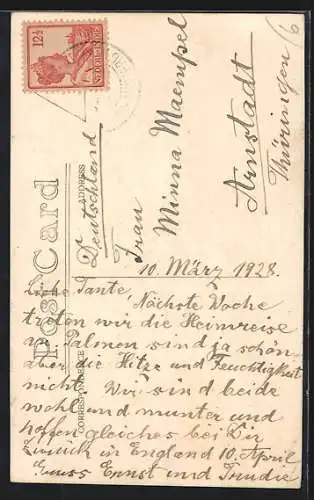 12½
NEDERL. INDIË
Post Card
ADDRESS
CORRESPONDENCE
Deutschland
Frau
Minna Maempel
Arnstadt
Thüringen
6
10. März 1928.
Liebe Tante,
Nächste Woche
treten wir die Heimreise
an Palmen sind ja schön
aber die Hitze und Feuchtigkeit
nicht. Wir sind beide
wohl und munter und
hoffen gleiches bei Dir
Zurück in England 10. April
Gruss Ernst und Trudie